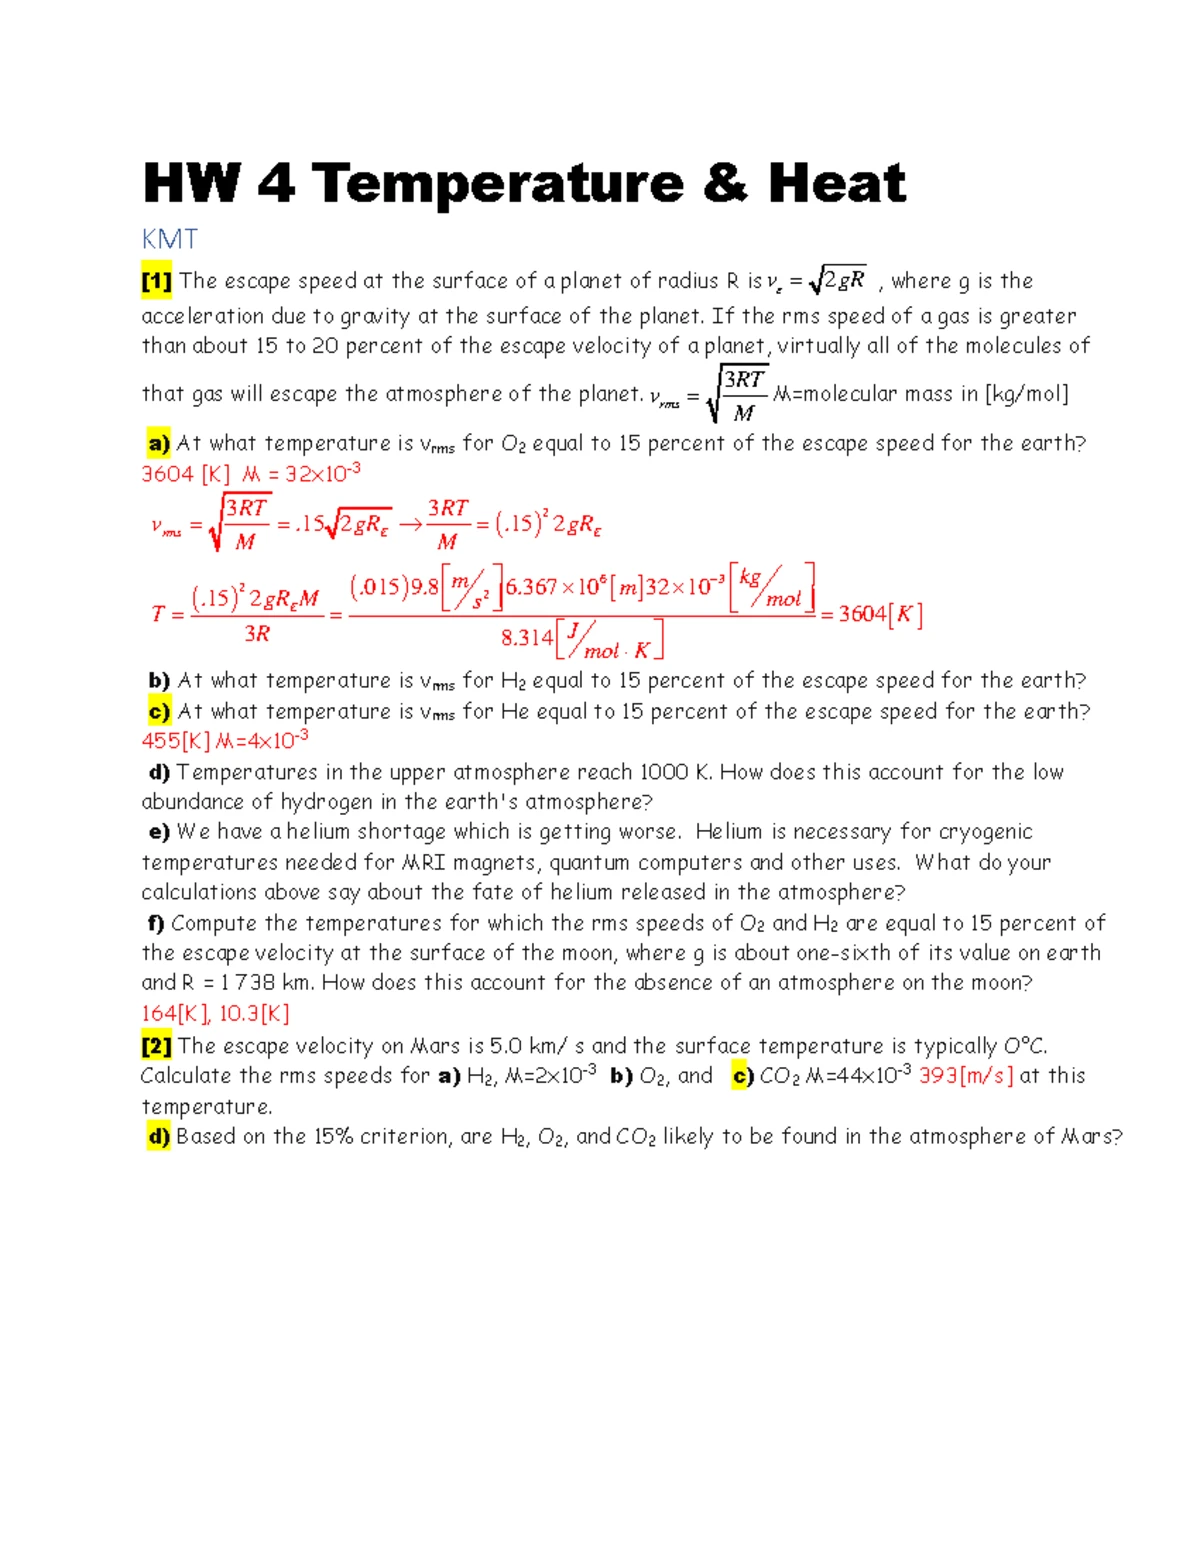 HW 4 Temperature & Heat
KMT
[1] The escape speed at the surface of a planet of radius R is vₑ = √(2gR) , where g is the
acceleration due to gravity at the surface of the planet. If the rms speed of a gas is greater
than about 15 to 20 percent of the escape velocity of a planet, virtually all of the molecules of
that gas will escape the atmosphere of the planet. v_rms = √(3RT/M) M=molecular mass in [kg/mol]
a) At what temperature is v_rms for O₂ equal to 15 percent of the escape speed for the earth?
3604 [K] M = 32x10⁻³
v_rms = √(3RT/M) = .15√(2gR_E) → 3RT/M = (.15)² 2gR_E
T = (.15)² 2gR_E M / 3R = (.015)9.8[m/s²]6.367×10⁶[m]32×10⁻³[kg/mol] / 8.314[J/mol·K] = 3604[K]
b) At what temperature is v_rms for H₂ equal to 15 percent of the escape speed for the earth?
c) At what temperature is v_rms for He equal to 15 percent of the escape speed for the earth?
455[K] M=4x10⁻³
d) Temperatures in the upper atmosphere reach 1000 K. How does this account for the low
abundance of hydrogen in the earth's atmosphere?
e) We have a helium shortage which is getting worse. Helium is necessary for cryogenic
temperatures needed for MRI magnets, quantum computers and other uses. What do your
calculations above say about the fate of helium released in the atmosphere?
f) Compute the temperatures for which the rms speeds of O₂ and H₂ are equal to 15 percent of
the escape velocity at the surface of the moon, where g is about one-sixth of its value on earth
and R = 1 738 km. How does this account for the absence of an atmosphere on the moon?
164[K], 10.3[K]
[2] The escape velocity on Mars is 5.0 km/ s and the surface temperature is typically O°C.
Calculate the rms speeds for a) H₂, M=2x10⁻³ b) O₂, and c) CO₂ M=44x10⁻³ 393[m/s] at this
temperature.
d) Based on the 15% criterion, are H₂, O₂, and CO₂ likely to be found in the atmosphere of Mars?